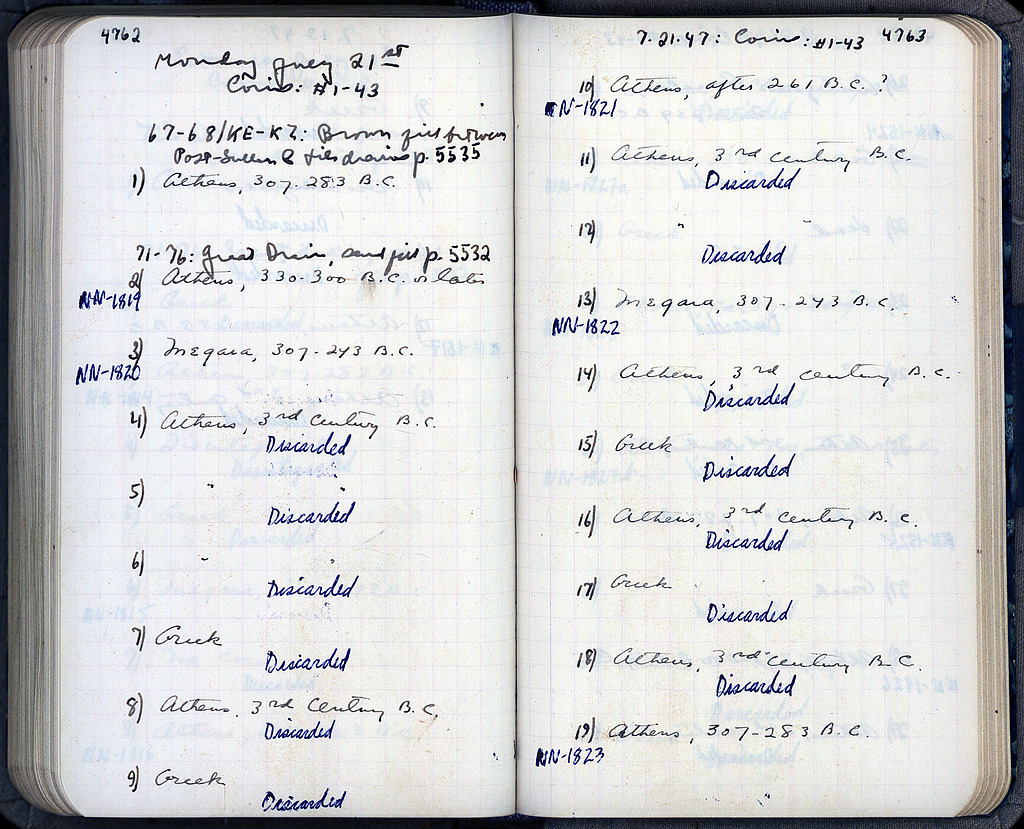 4762
Monday July 21st
Coins: #1-43
67-68/KE-KZ: Brown fill between
Post-Sullan & tile drains p. 5535
1) Athens, 307-283 B.C.
71-76: Great Drain, sand fill p. 5532
2) Athens, 330-300 B.C. or later
NN-1819
3) Megara, 307-243 B.C.
NN-1820
4) Athens, 3rd century B.C.
Discarded
5) " "
Discarded
6) " "
Discarded
7) Greek
Discarded
8) Athens, 3rd century B.C.
Discarded
9) Greek
Discarded
7.21.47: Coins: #1-43 4763
10) Athens, after 261 B.C.?
NN-1821
11) Athens, 3rd century B.C.
Discarded
12) "
Discarded
13) Megara, 307-243 B.C.
NN-1822
14) Athens, 3rd century B.C.
Discarded
15) Greek
Discarded
16) Athens, 3rd century B.C.
Discarded
17) Greek
Discarded
18) Athens, 3rd century B.C.
Discarded
19) Athens, 307-283 B.C.
NN-1823